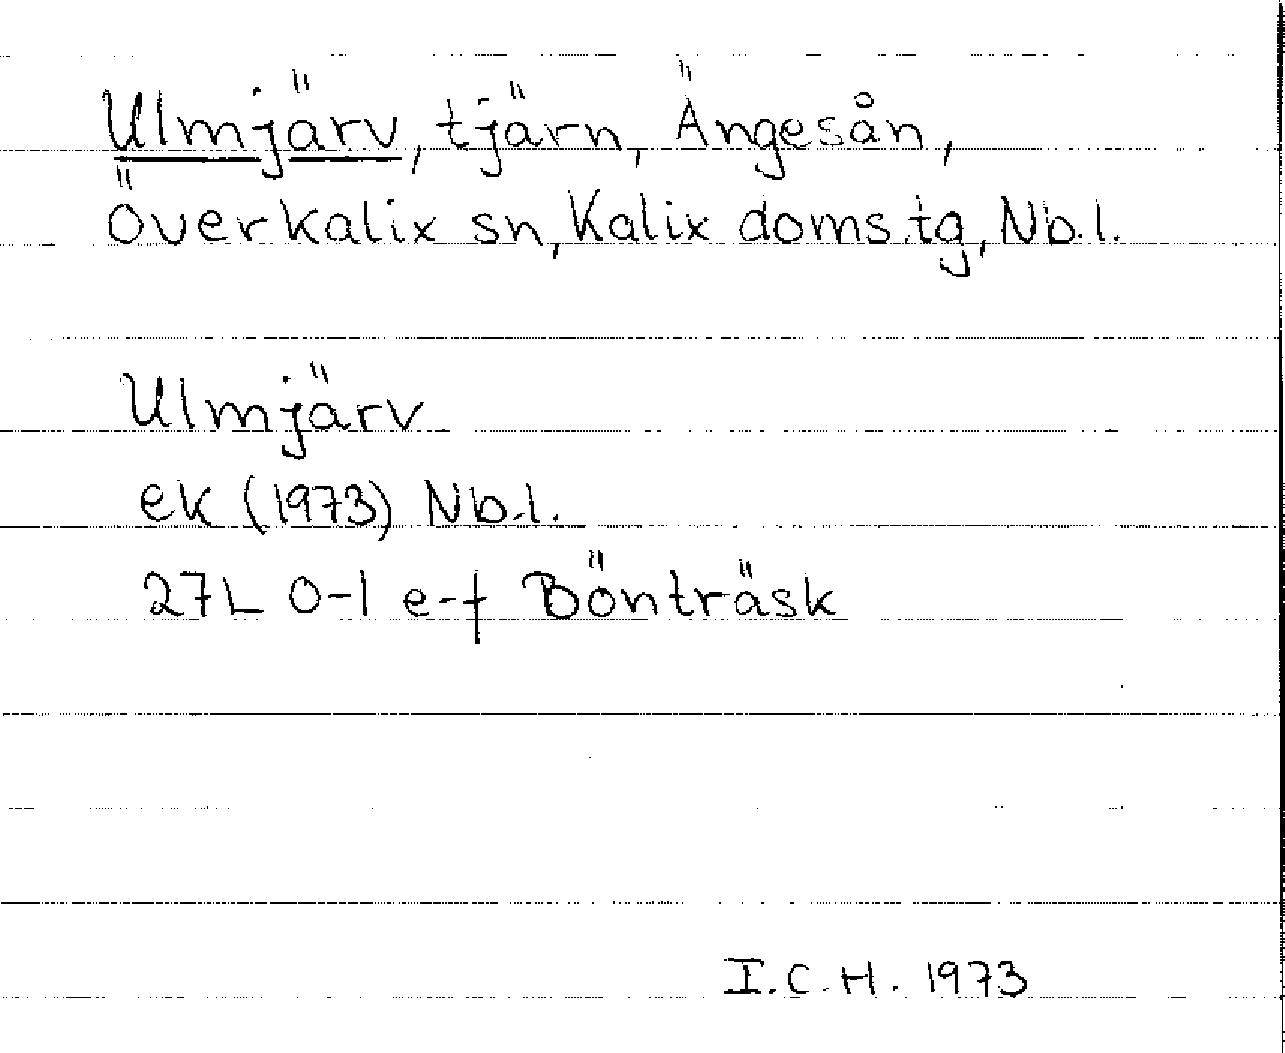 Ulmjärv, tjärn, Ängesån,
Överkalix sn, Kalix doms.tg, Nb.l.
Ulmjärv
ek (1973) Nb.l.
27L 0-1 e-f Bönträsk
I.C.H. 1973